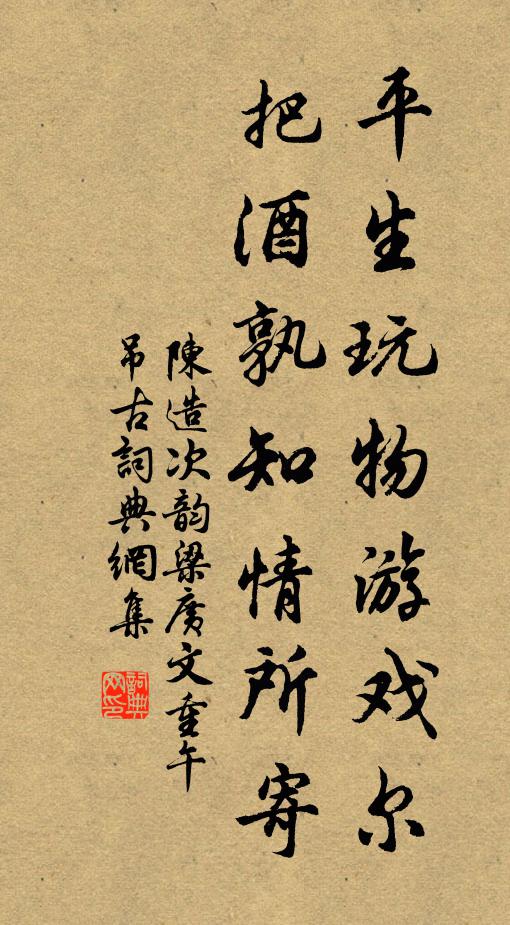 平生玩物游戏尔
把酒孰知情所寄
陳造次韵梁廣文重午
吊古詞典網集
詞典網印